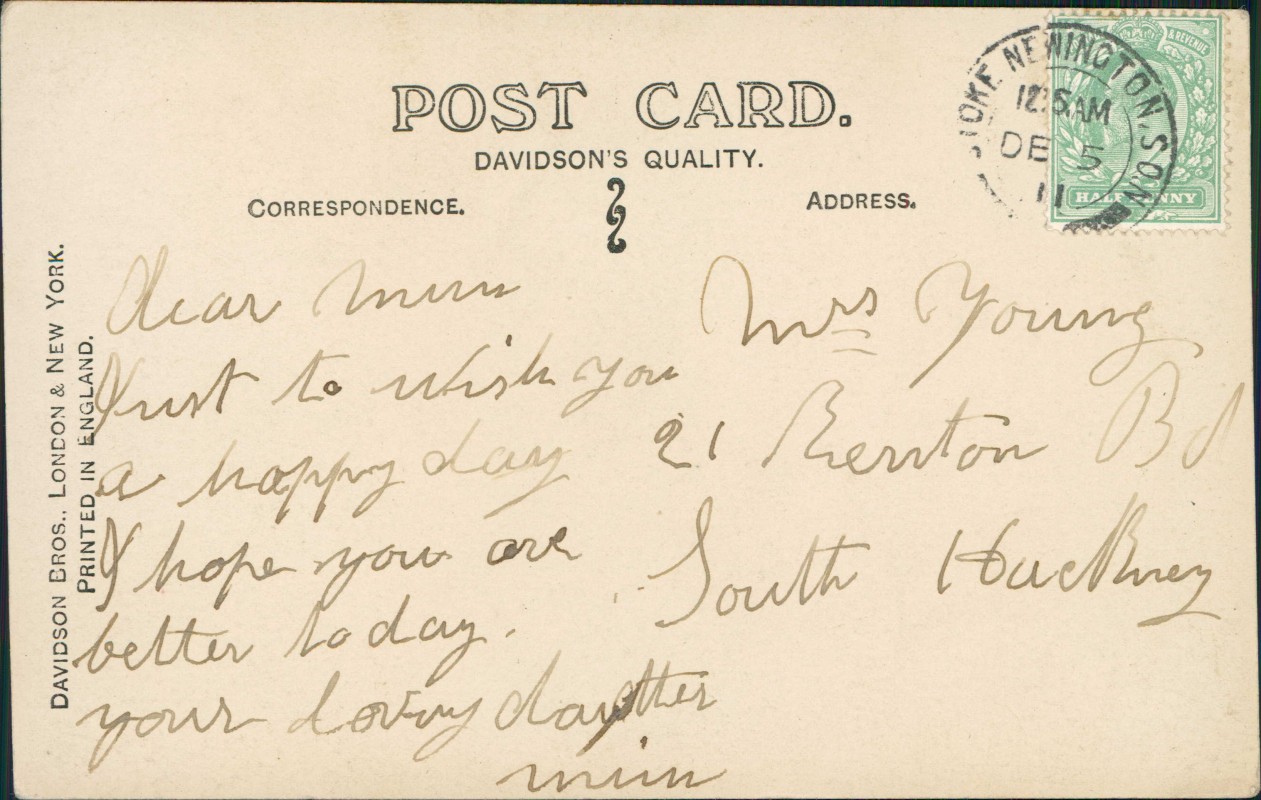 POST CARD.
DAVIDSON'S QUALITY.
CORRESPONDENCE.
ADDRESS.
STOKE NEWINGTON. S.O.N
12.15AM
DE 5
11
& REVENUE
HALFPENNY
DAVIDSON BROS., LONDON & NEW YORK.
PRINTED IN ENGLAND.
dear mum
Just to wish you
a happy day
I hope you are
better today.
your loving daughter
mim
Mrs Young
21 Rd
South Hackney